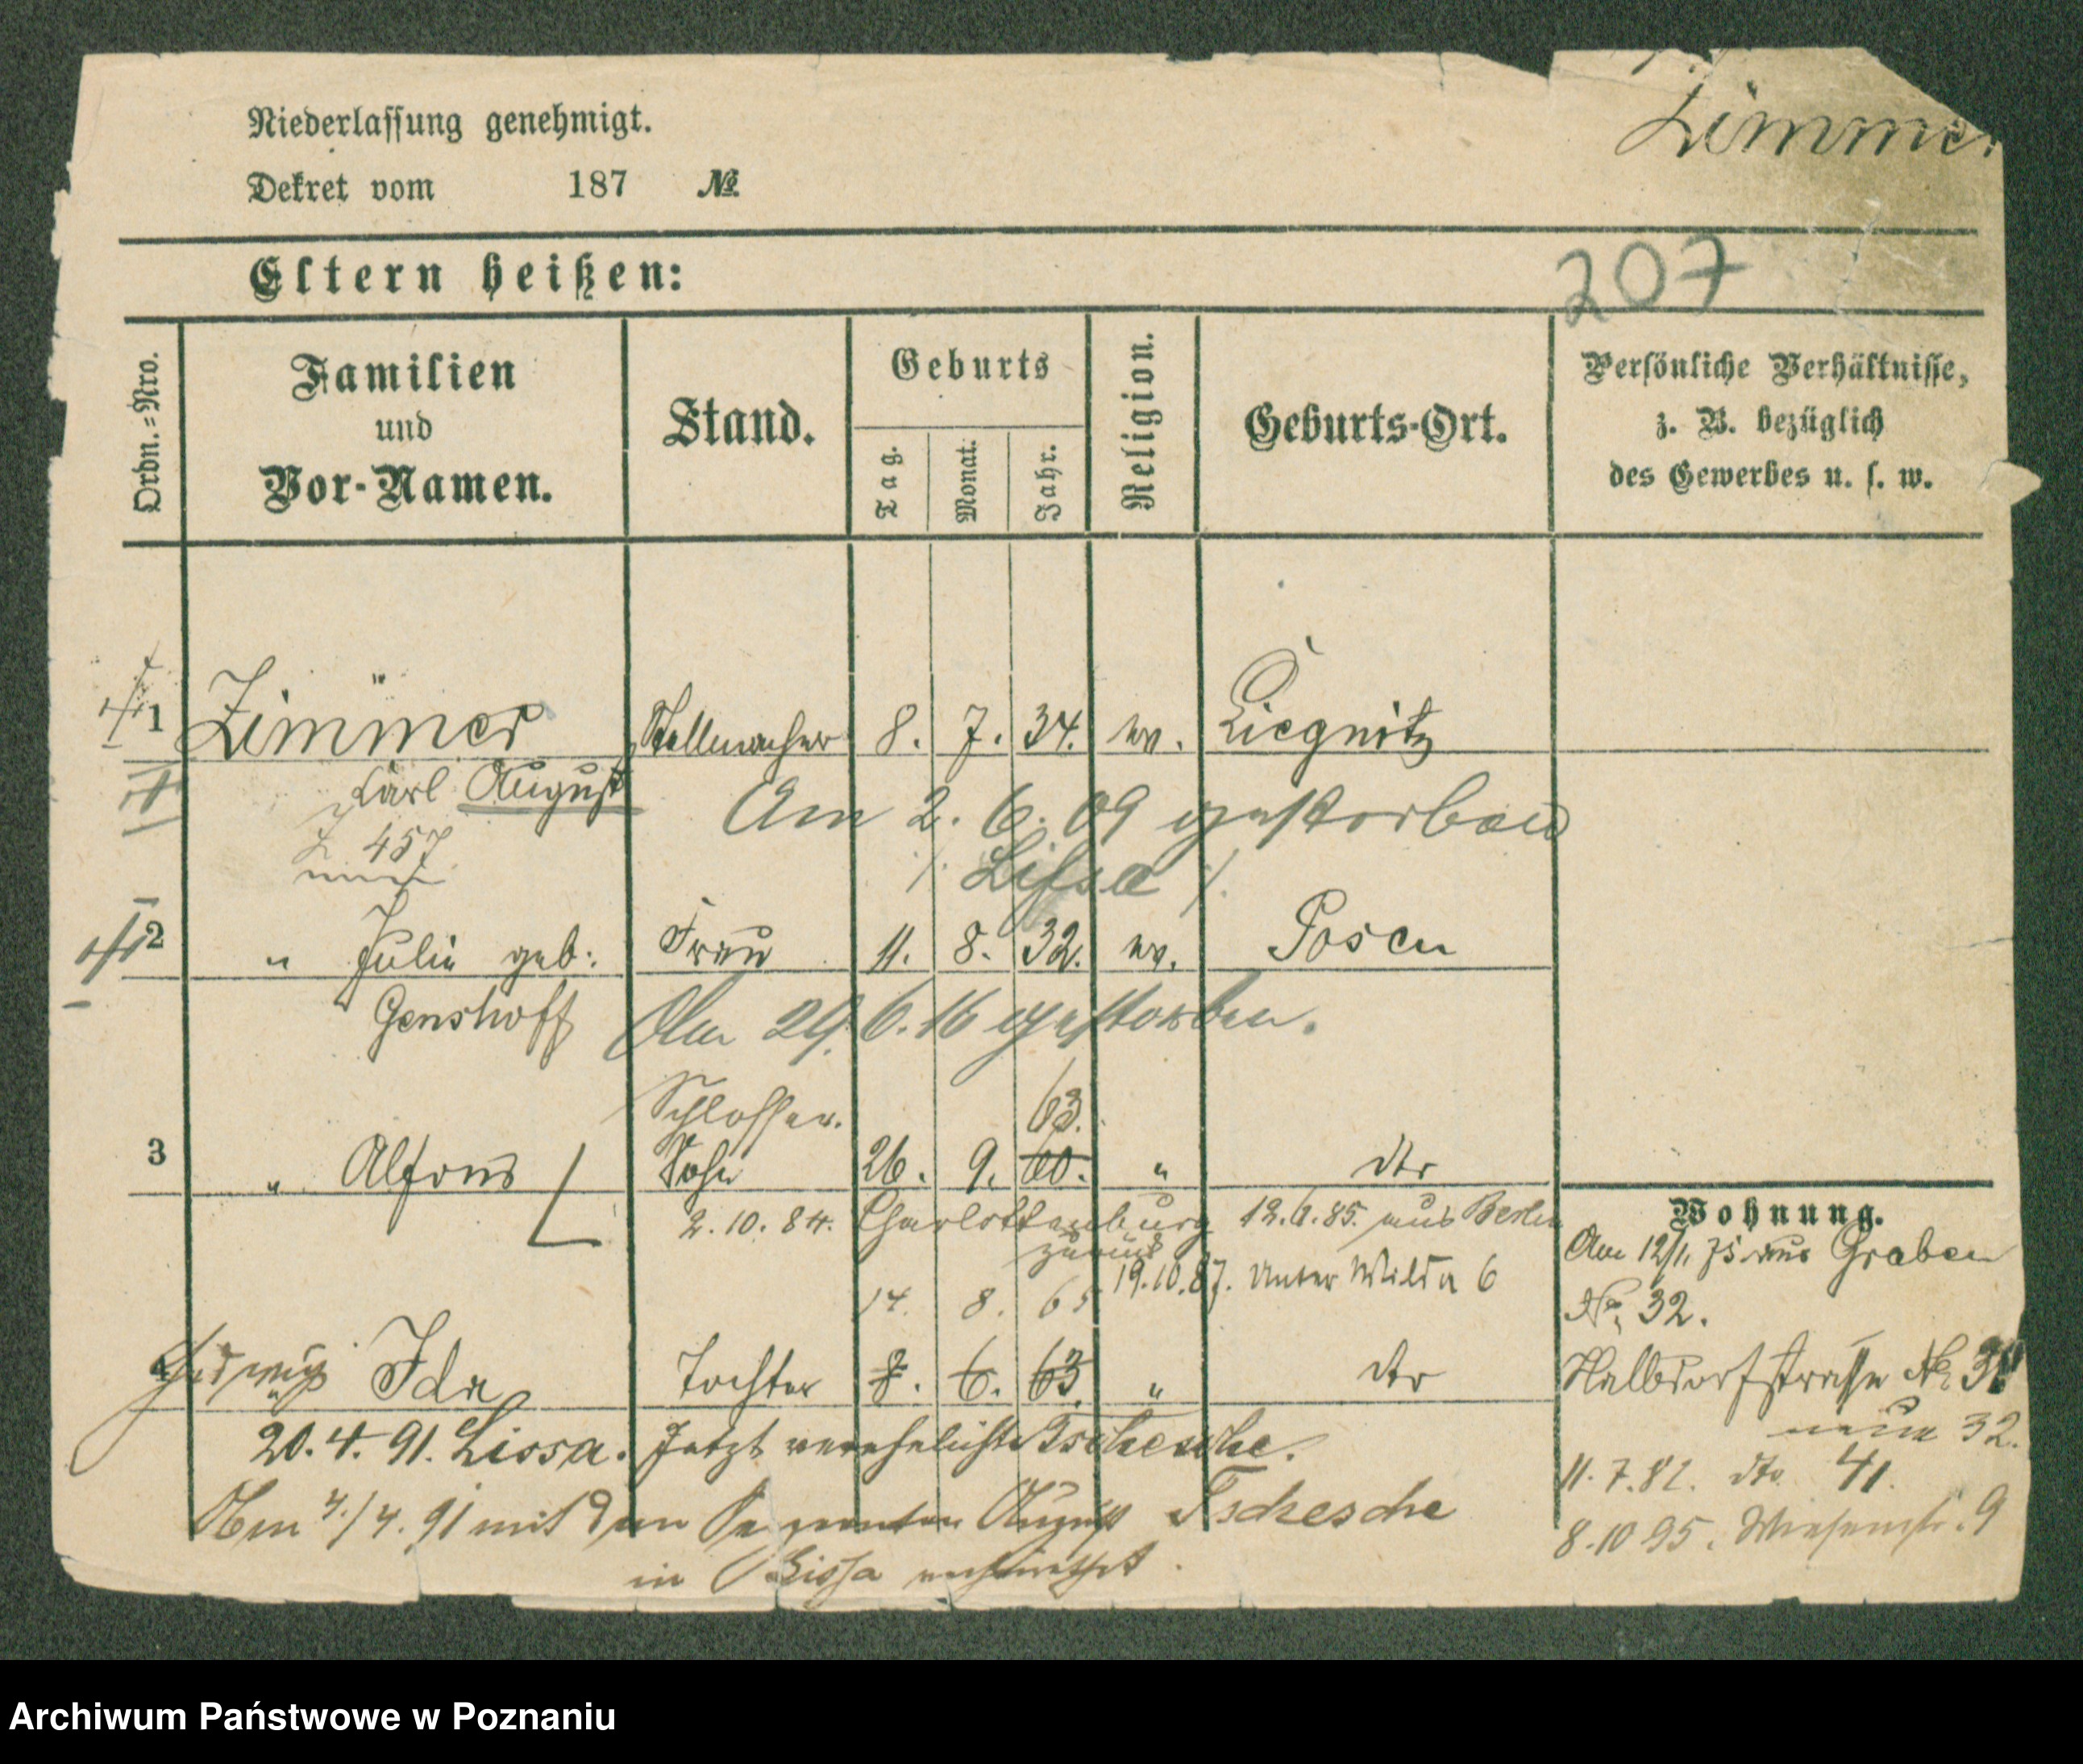 Niederlassung genehmigt.
Zimmer
Dekret vom 187 №
Eltern heißen:
207
Ordn.-Nro.
Familien
und
Vor-Namen.
Stand.
Geburts
Tag.
Monat.
Jahr.
Religion.
Geburts-Ort.
Persönliche Verhältnisse,
z. B. bezüglich
des Gewerbes u. s. w.
1 Zimmer Stellmacher 8. 7. 34. ev. Liegnitz
Carl August
Am 2. 6. 09 gestorben
457
/. Lissa /.
2 " Julie geb: Frau 11. 8. 32. ev. Posen
Genshoff
Am 29. 6. 16 gestorben.
Schlosser. 63.
3 " Alfons Sohn 26. 9. 60. " dto
2. 10. 84. Charlottenburg 12. 6. 85. aus Berlin
zurück
19.10.87. Unter Wilda 6
14. 8. 65
Hedwig
" Ida Tochter 8. 6. 63. " dto
20. 4. 91. Lissa. Jetzt verehelichte Tschesche.
Am 4./4. 91 mit dem August Tschesche
in Lissa verheirathet.
Wohnung.
Am 12/1. 75 aus Graben
No. 32.
Halbdorfstrasse No
neue 32.
11. 7. 82. dto. 41.
8. 10 95. Wiesenstr. 9
Archiwum Państwowe w Poznaniu